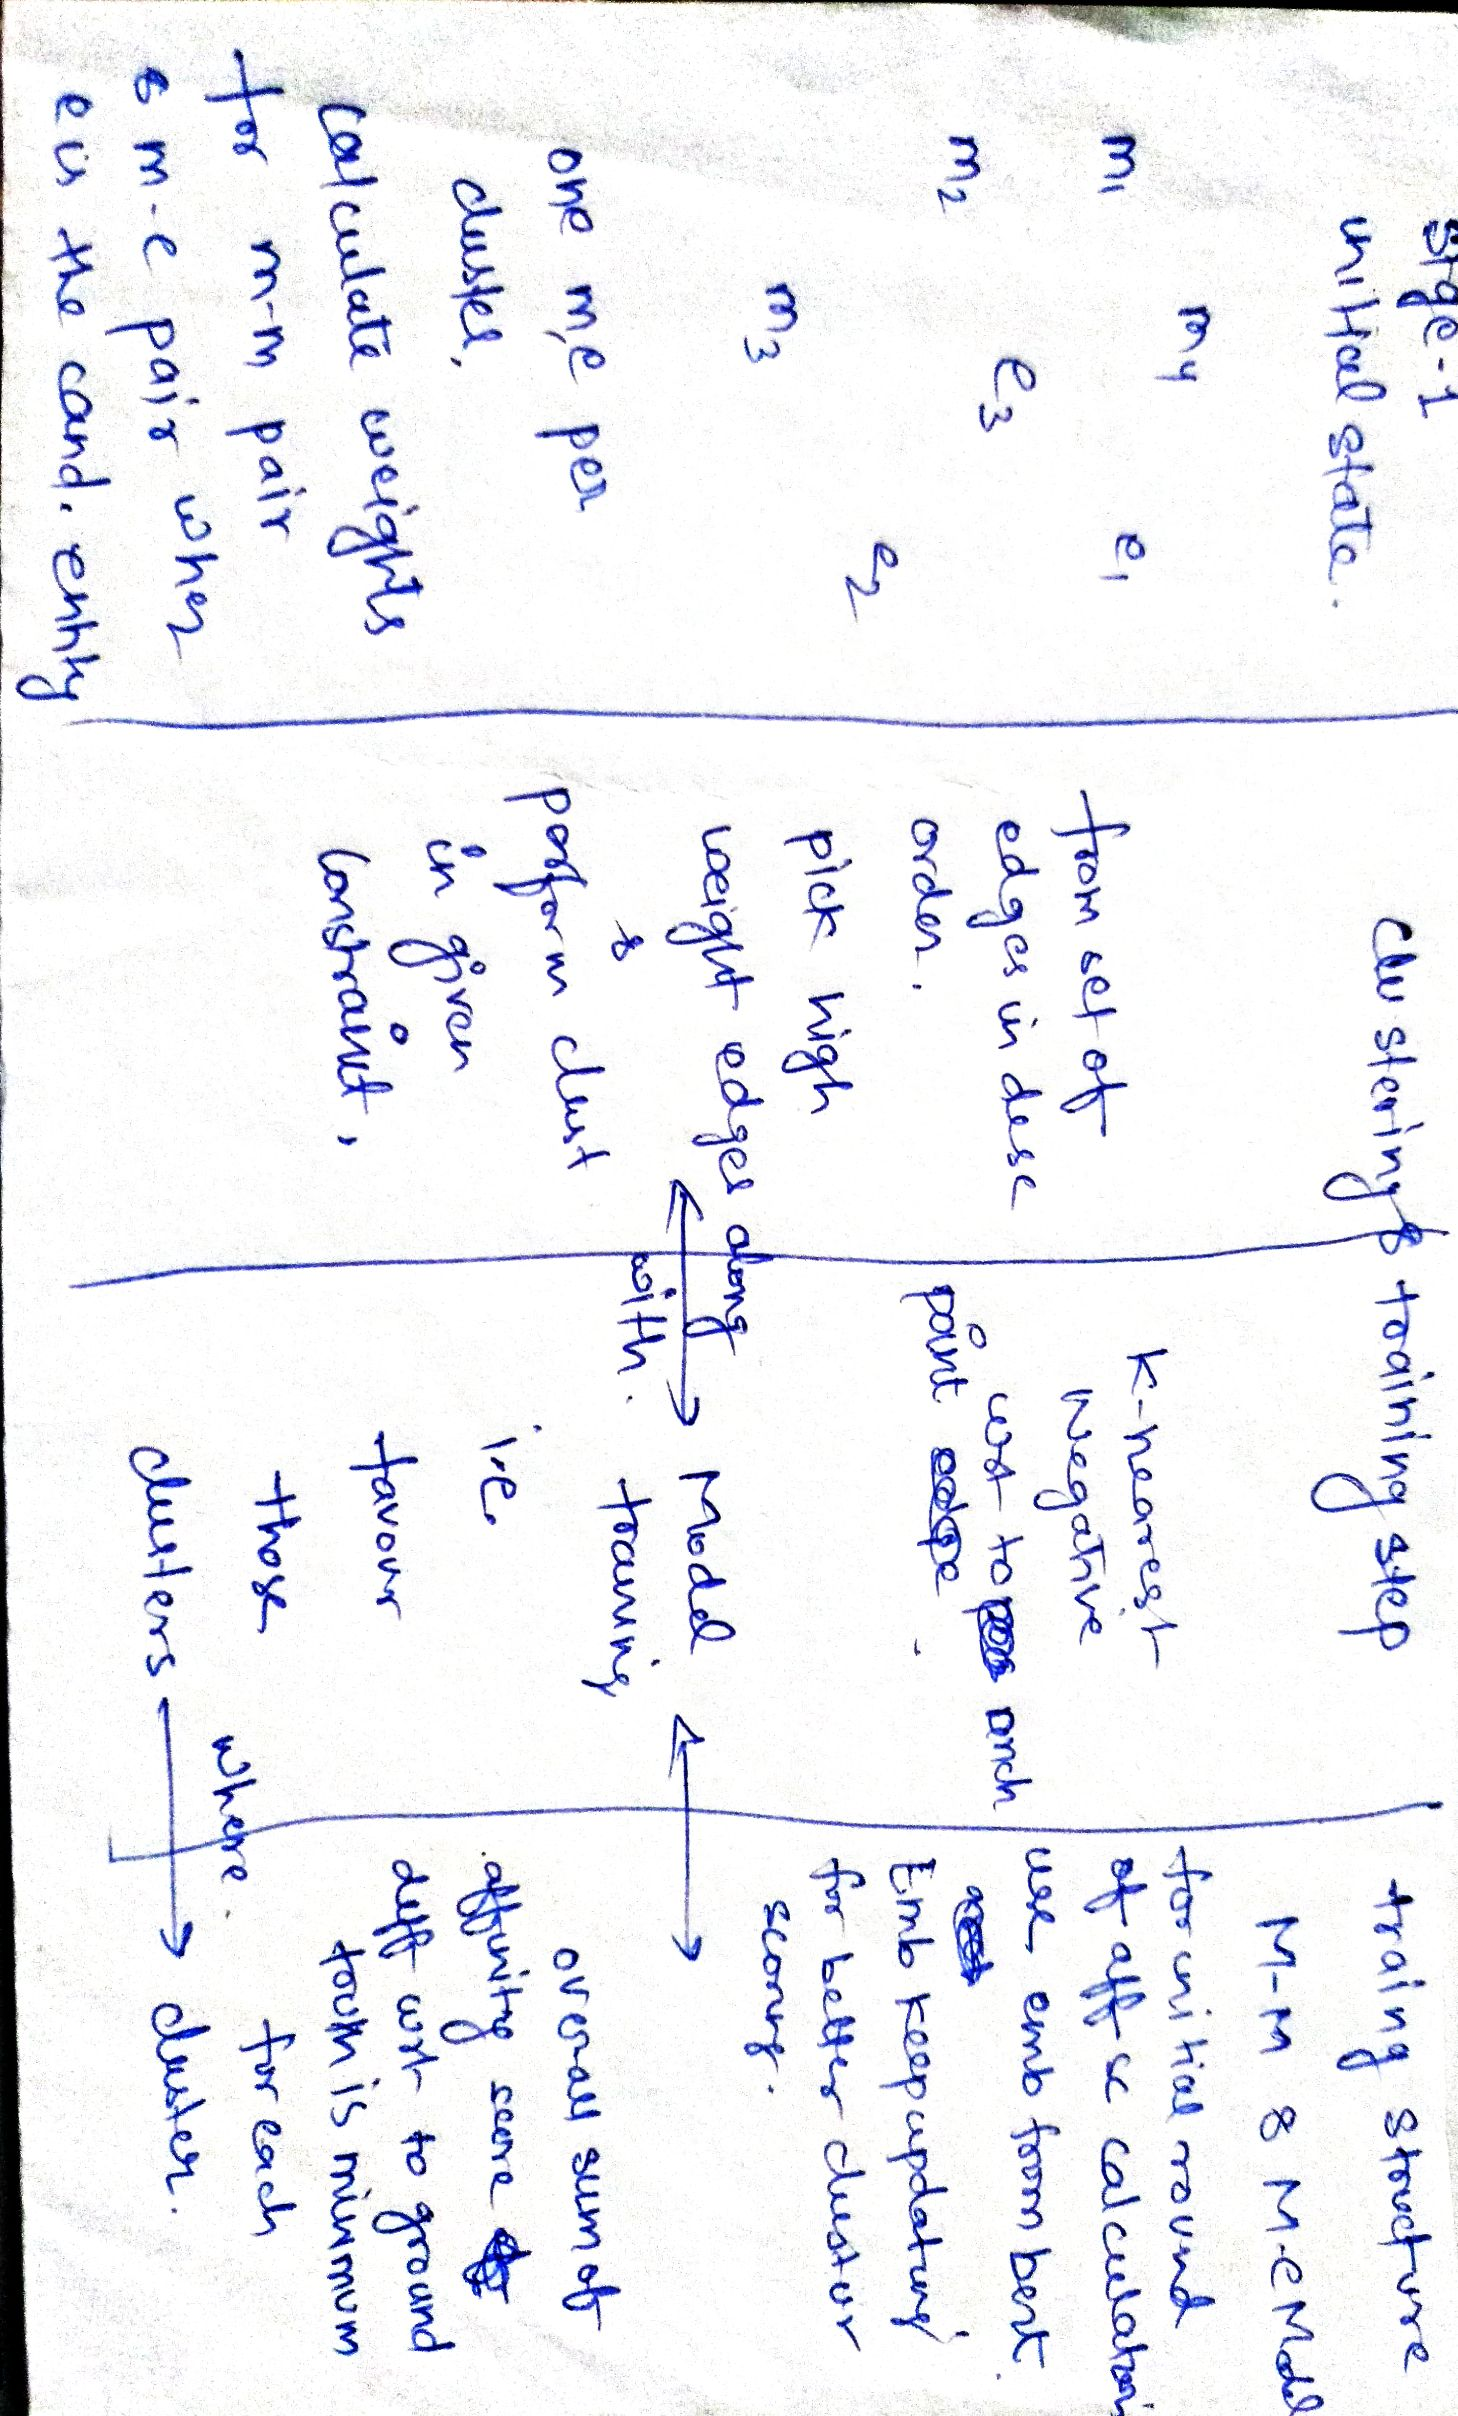 Stage-1
initial state.
m4
m1
e1
e3
m2
e2
m3
one m,e per
cluster.
Calculate weights
for m-m pair
& m-e pair wher
e is the cand. entity
Clustering & training step
from set of
edges in desc
order.
pick high
weight edges along
with.
&
perform clust
in given
constraint,
K-nearest
Negative
wrt to anch
point
Model
training
i.e.
favour
those
clusters
where
training structure
M-M & M-e Model
for initial round
of aff sc calculation
use emb from bert.
Emb keep updating
for better clustur
scoring.
overall sum of
affinity score
diff wrt to ground
truth is minimum
for each
cluster.